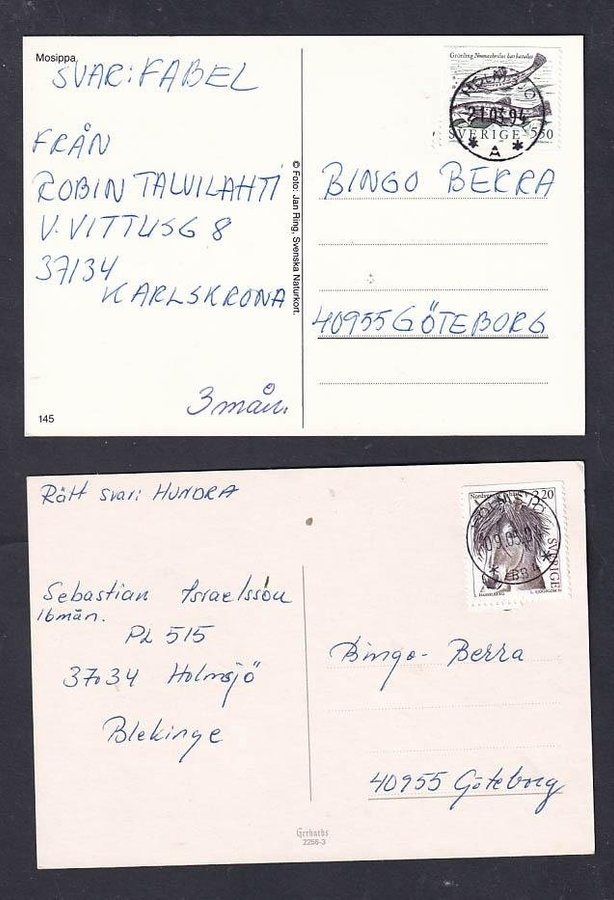 Mosippa.
SVAR: FABEL
FRÅN
ROBIN TALVILAHTI
V. VITTUSG 8
37134
KARLSKRONA
3 mån.
145
© Foto: Jan Ring, Svenska Naturkort.
SVERIGE 550
21.03.94
A
BINGO BERRA
40955 GÖTEBORG
Rätt svar: HUNDRA
Sebastian Israelsson
16mån.
PL 515
37034 Holmsjö
Blekinge
320
SVERIGE
Bingo-Berra
40955 Göteborg
Gerhards
2256-3